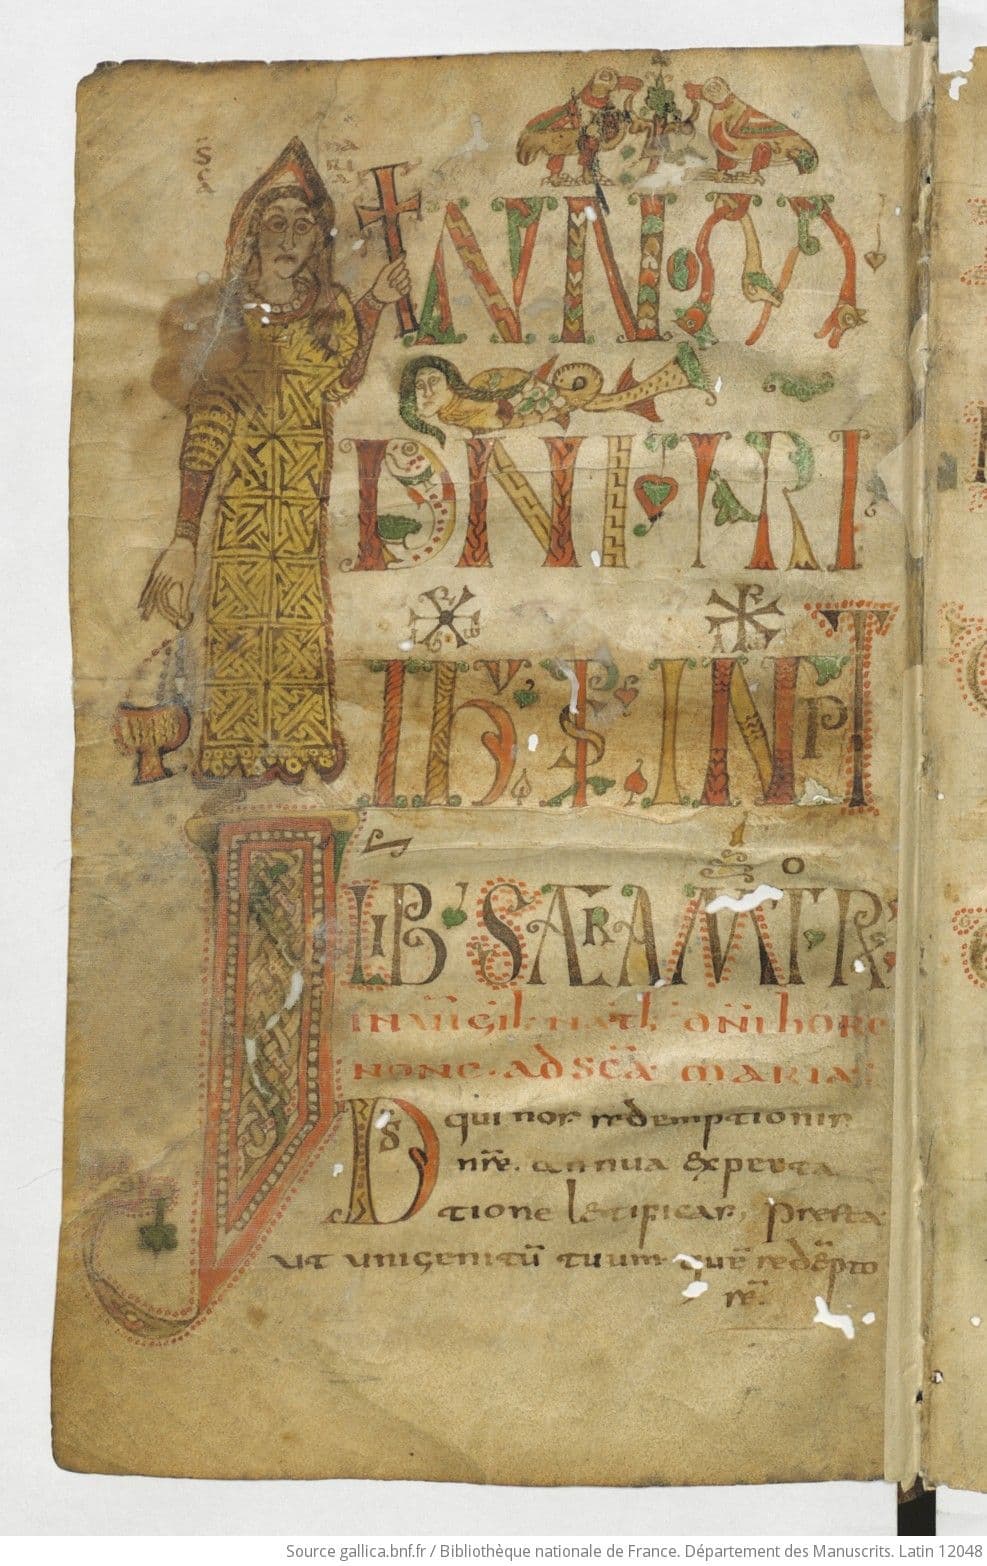 SCA MARIA
NNOM
DNI NTRI
IHV XPI INPT
LIB SACRAMTOR
IN UIGIL NATL DNI HORE
NONE. AD SCA MARIA
Ds qui nos redemptionis
nre. annua expecta
tione letificas, Presta
ut unigenitū tuum quē redēpto
rē.
Source gallica.bnf.fr / Bibliothèque nationale de France. Département des Manuscrits. Latin 12048